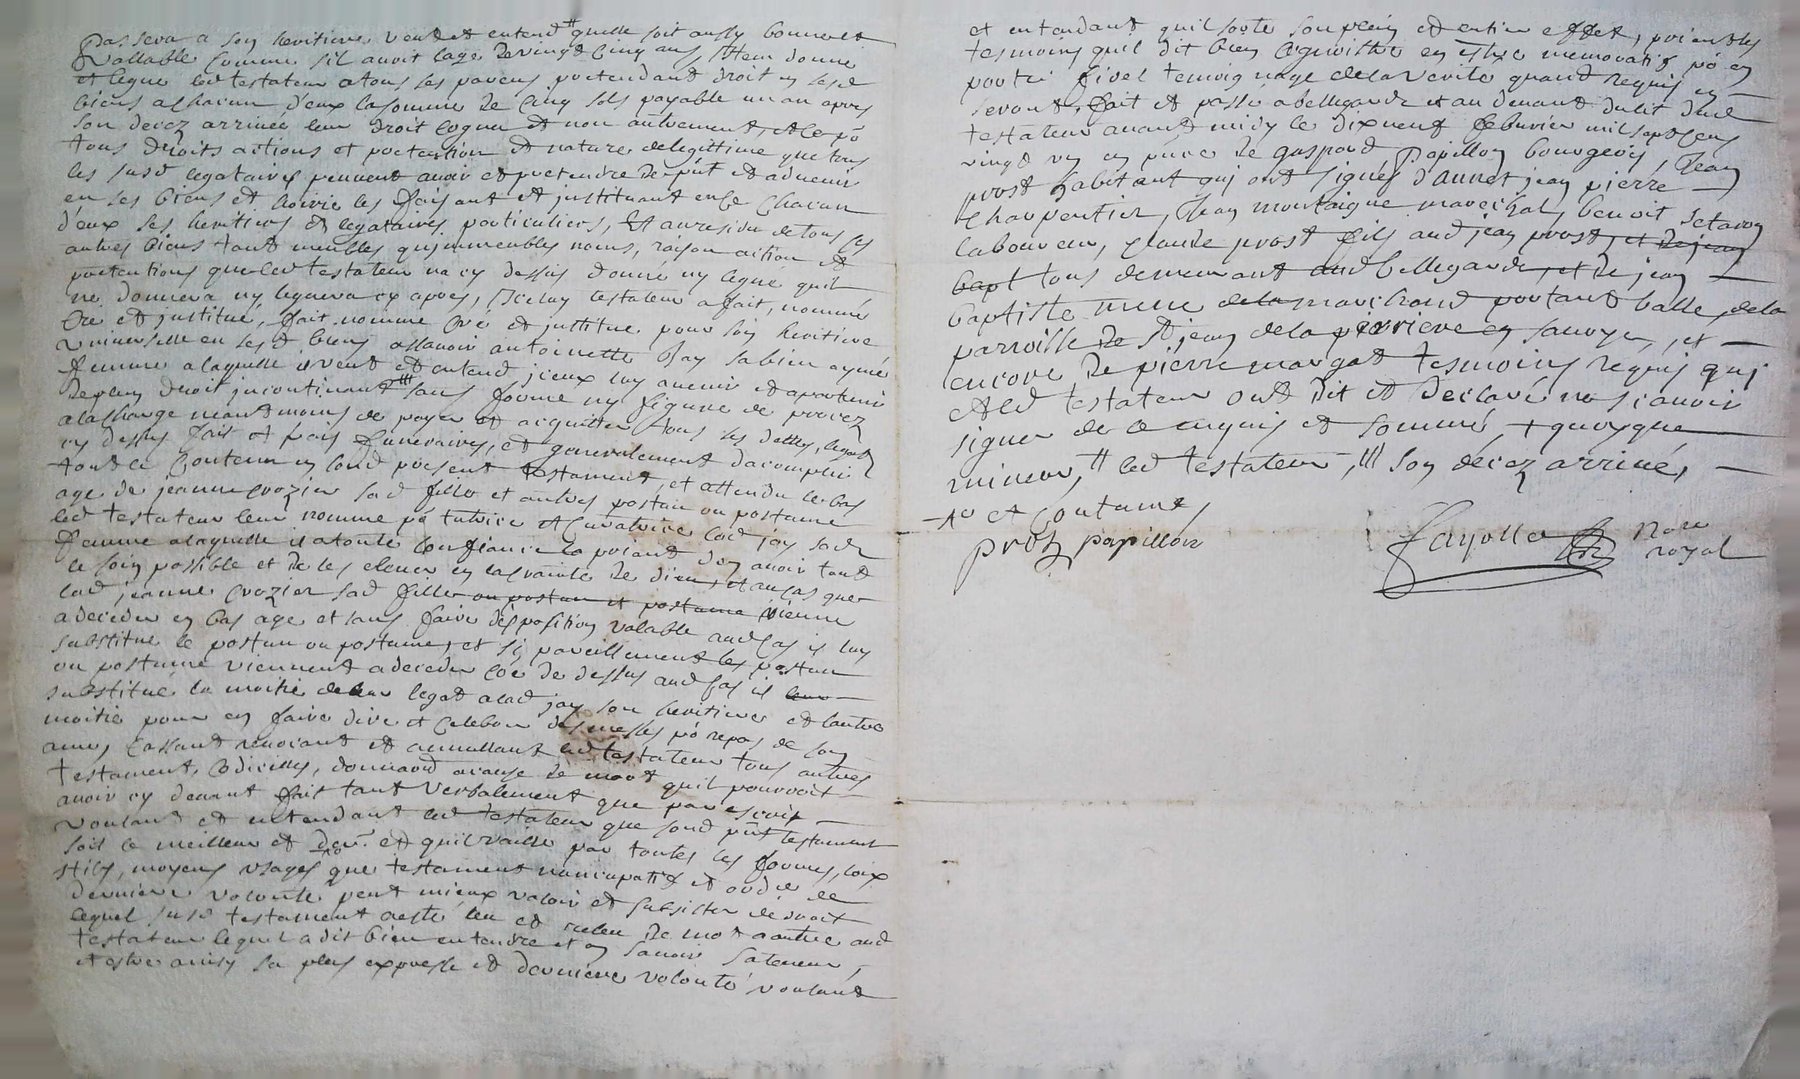 passera a son heritiere veut et entend †† quelle soit aussy bonne et
vallable comme sil avoit lage de vingt cinq ans, Item donne
et legue led testateur a tous ses parens pretendant droit en sesd
biens a chacun d'eux la somme de cinq sols payable un an apres
son decez arrivée leur droit cogneu et non autrement, et le pō
tous droits actions et pretention et nature de legittime que tous
les susd legataires peuvent avoir et pretendre de pūt et advenir
en ses biens et hoirie les faisant et instituant en ce chacun
d'eux ses heritiers et legataires particuliers, Et au residu de tous ses
autres biens tant meubles qu immeubles noms, raison action et
pretentions que led testateur na cy dessus donné ny legué quil
ne donnera ny leguera cy apres, Iceluy testateur a fait, nommé
cré et institué, fait nomme cré et institue pour son heritiere
universelle en sesd biens assavoir antoinette Jay sa bien aymé
femme a laquelle il veut et entend iceux luy avenir et apartenir
de plein droit incontinant ||| sans forme ny figure de procez
a la charge neantmoins de payer et acquitter tous ses dettes, legats
cy dessus fait et frais funeraires, et generalement dacomplir
tout le contenu en soud present testament, et attendu le bas
age de jeanne crozier sad fille et autres postum ou postume
led testateur leur nomme pō tutrice et curatrice lad jay sad
femme a laquelle il a toute confiance la priant den avoir tout
le soin possible et de les elever en la crainte de dieu, et au cas que
lad jeanne crozier sad fille ou postum et postume vienne
a deceder en bas age et sans faire disposition valable aud cas il luy
substitue le postum ou postume, et si pareillement les postum
ou postume viennent a deceder cōe de dessus aud cas il leur
substitue la moitie de leur legat a lad jay son heritiere et lautre
moitie pour en faire dire et celebrer des messes pō repos de son
ame, cassant revocant et annullant led testateur tous autres
testament, codicilles, donnaōn a cause de mort quil pourroit
avoir cy devant fait tant verbalement que par escrit
voulant et entendant led testateur que soud pūt testament
soit le meilleur et der. et quil vaille par toutes les formes, loix
stils, moyens usages que testament nuncupatif et ordre de
derniere volonté peut mieux valoir et subsister de droit
lequel susd testament a esté leu et releu de mot a autre aud
testateur lequel a dit bien entendre et en savoir sa teneur,
et estre ainsy sa plus expresse et derniere volonté voulant
et entendant quil sorte son plein et entier effet, priant les
tesmoins quil dit bien cognoistre en estre memoratif pō en
porter fidel temoignage de la verite quand requis en
seront, fait et passé a bellegarde et au devant dulit dud
testateur avant midy le dix neuf febvrier mil sept cens
vingt un en pūce de gaspard papillon bourgeois, Jean
prost habitant qui ont signés d'annet jean pierre
charpentier, Jean montaigne marechal, benoit setaron
laboureur, claude prost fils aud jean prost, et de jean
bapt tous demeurant aud bellegarde, et de jean
baptiste mene de la marchand portant balle, de la
parroisse de St jean de la perriere en savoye, et
encore de pierre margat tesmoins requis qui
et led testateur ont dit et declaré ne scavoir
signer de ce enquis et sommé, + quoyque
mineur, †† led testateur, ||| son decez arrivé,
et coutume,
prost papillon
fayolle nore
royal